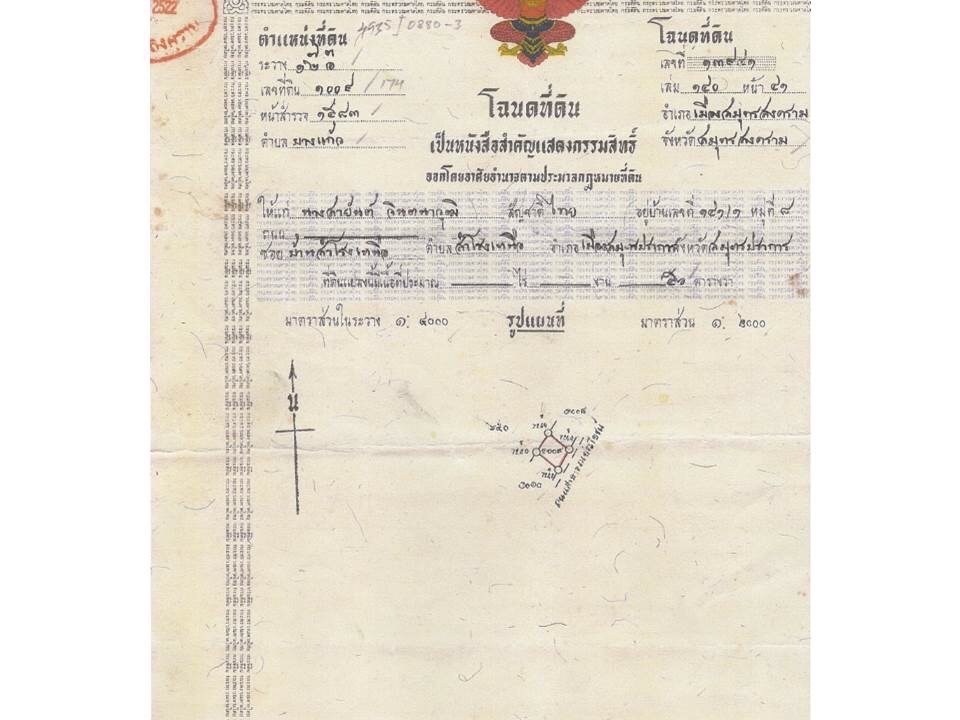 2522
ตำแหน่งที่ดิน
4935 I 0880-3
ระวาง
เลขที่ดิน ๑๐๐๙ / 174
หน้าสำรวจ ๑๕๘๓
ตำบล บางแก้ว
โฉนดที่ดิน
เลขที่ ๑๓๙๔๑
เล่ม ๑๔๐ หน้า ๔๑
อำเภอ เมืองสมุทรสงคราม
จังหวัด สมุทรสงคราม
โฉนดที่ดิน
เป็นหนังสือสำคัญแสดงกรรมสิทธิ์
ออกโดยอาศัยอำนาจตามประมวลกฎหมายที่ดิน
ให้แก่ นางสายันต์ จินตนาวุฒิ สัญชาติ ไทย อยู่บ้านเลขที่ ๑๔๑/๑ หมู่ที่ ๘
ถนน
ซอย บ้านสำโรงเหนือ ตำบล สำโรงเหนือ อำเภอ เมืองสมุทรปราการ จังหวัด สมุทรปราการ
ที่ดินแปลงนี้มีเนื้อที่ประมาณ ไร่ งาน ๕๐ ตารางวา
มาตราส่วนในระวาง ๑: ๔๐๐๐ รูปแผนที่ มาตราส่วน ๑: ๒๐๐๐
น
๑๐๐๙